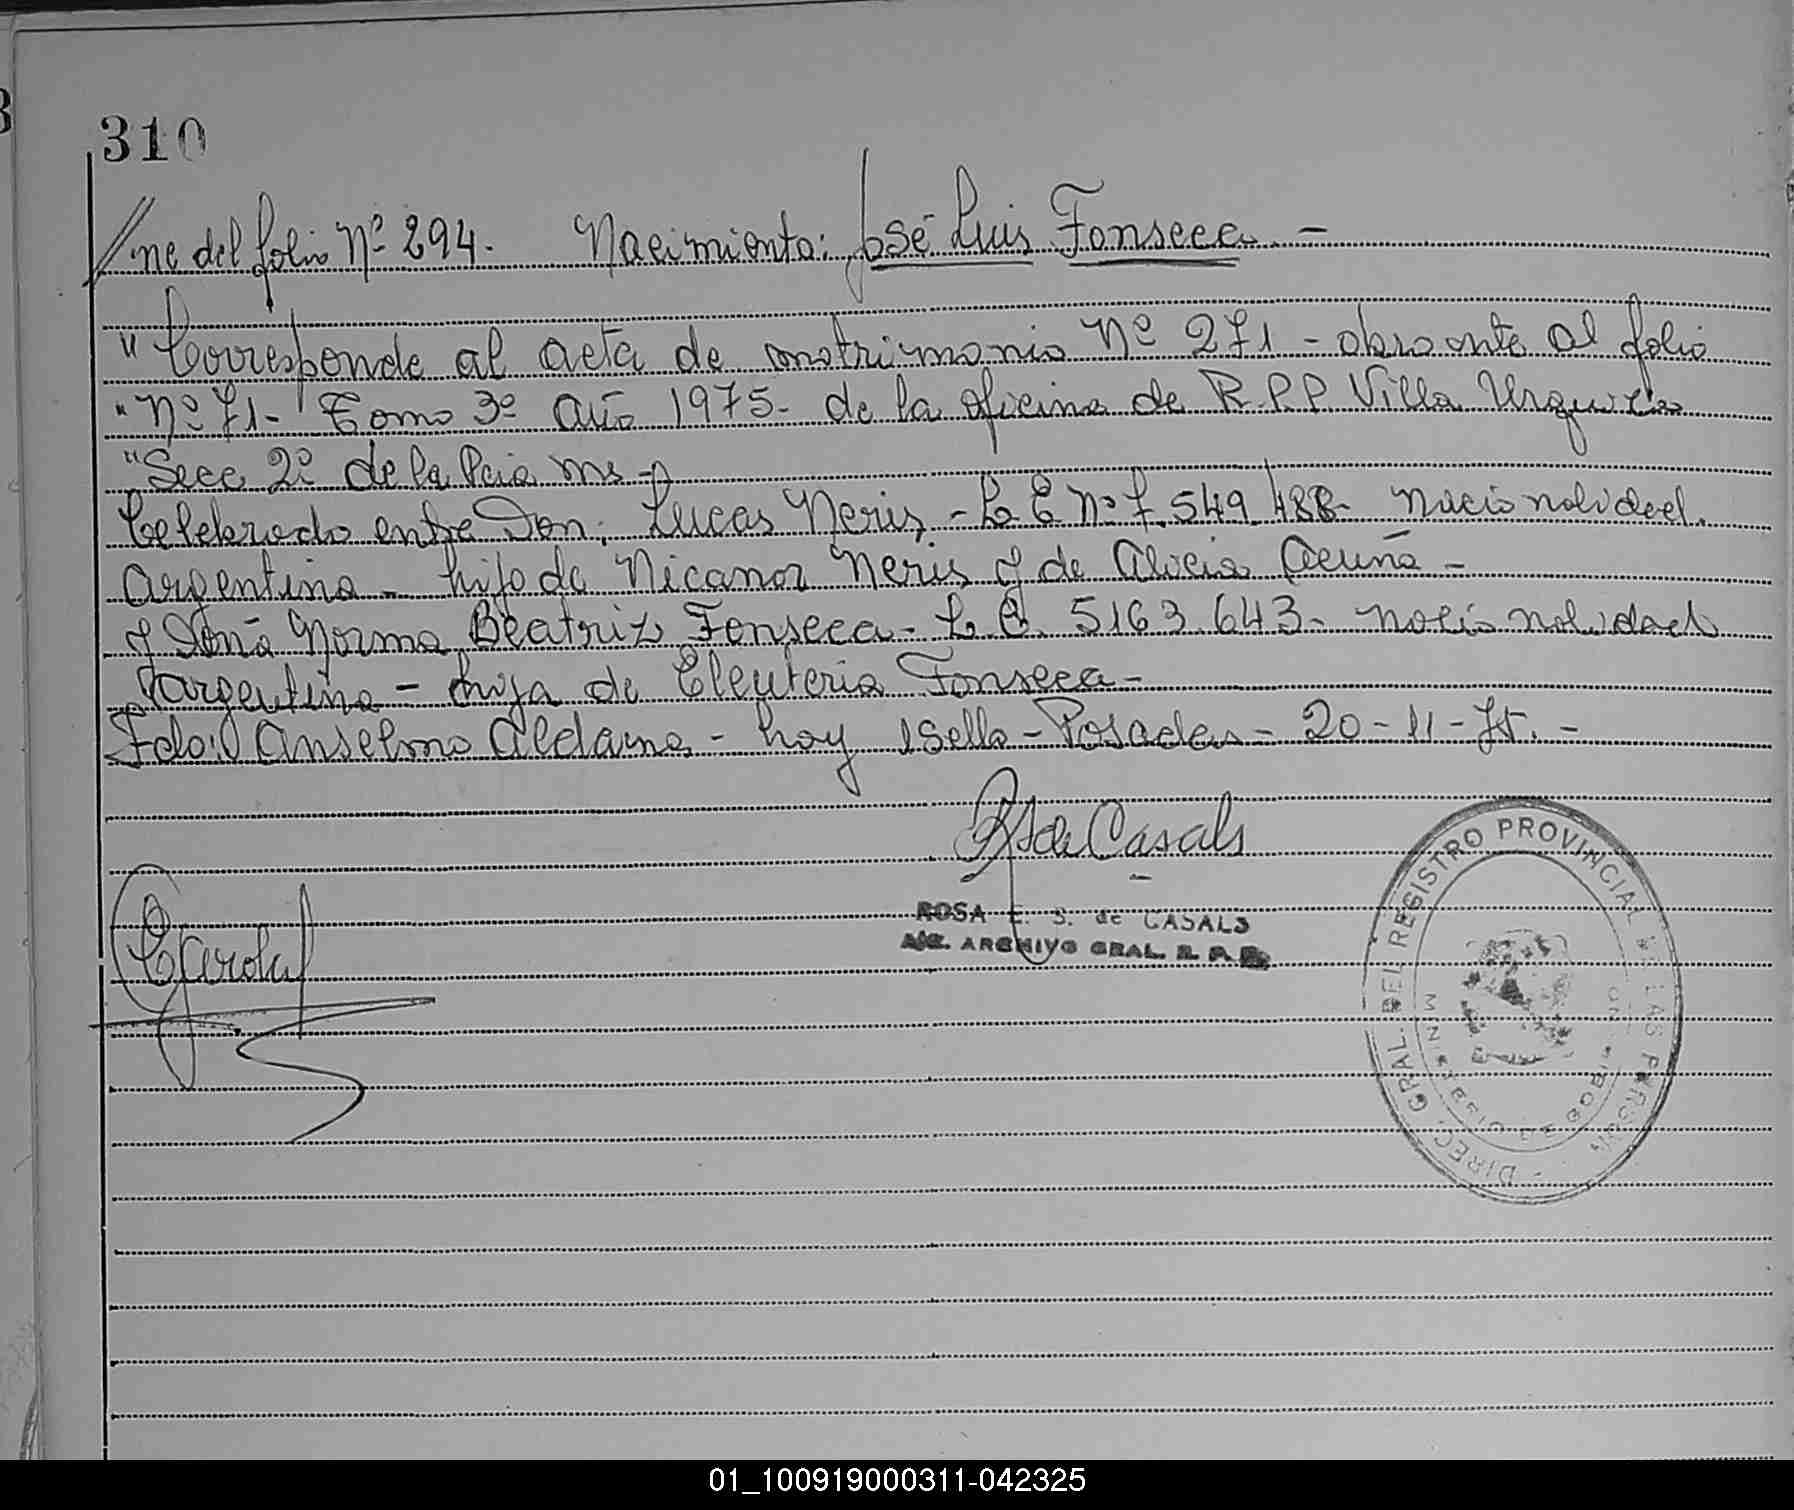 310
//ne del folio Nº 294. Nacimiento: José Luis Fonseca. -
" Corresponde al acta de matrimonio Nº 271 - obrante al folio
" Nº 71 - Tomo 3º año 1975 - de la oficina de R.P.P Villa Urquiza
" Secc 2º de la Pcia Mns -
Celebrado entre Don: Lucas Neris - L E Nº 7.549.488 - nacionalidad
argentina - hijo de Nicanor Neris y de Alicia Acuña -
y Doña Norma Beatriz Fonseca - L. C. 5163.643 - nacionalidad
argentina - hija de Eleuteria Fonseca -
Fdo: Anselmo Aldama - hay 1 Sello - Posadas - 20 - 11 - 75. -
R S de Casals
ROSA E. S. de CASALS
ARCHIVO GRAL. R. P. P.
DIREC. GRAL. DEL REGISTRO PROVINCIAL DE LAS PERSONAS
MINISTERIO DE GOBIERNO
01_100919000311-042325